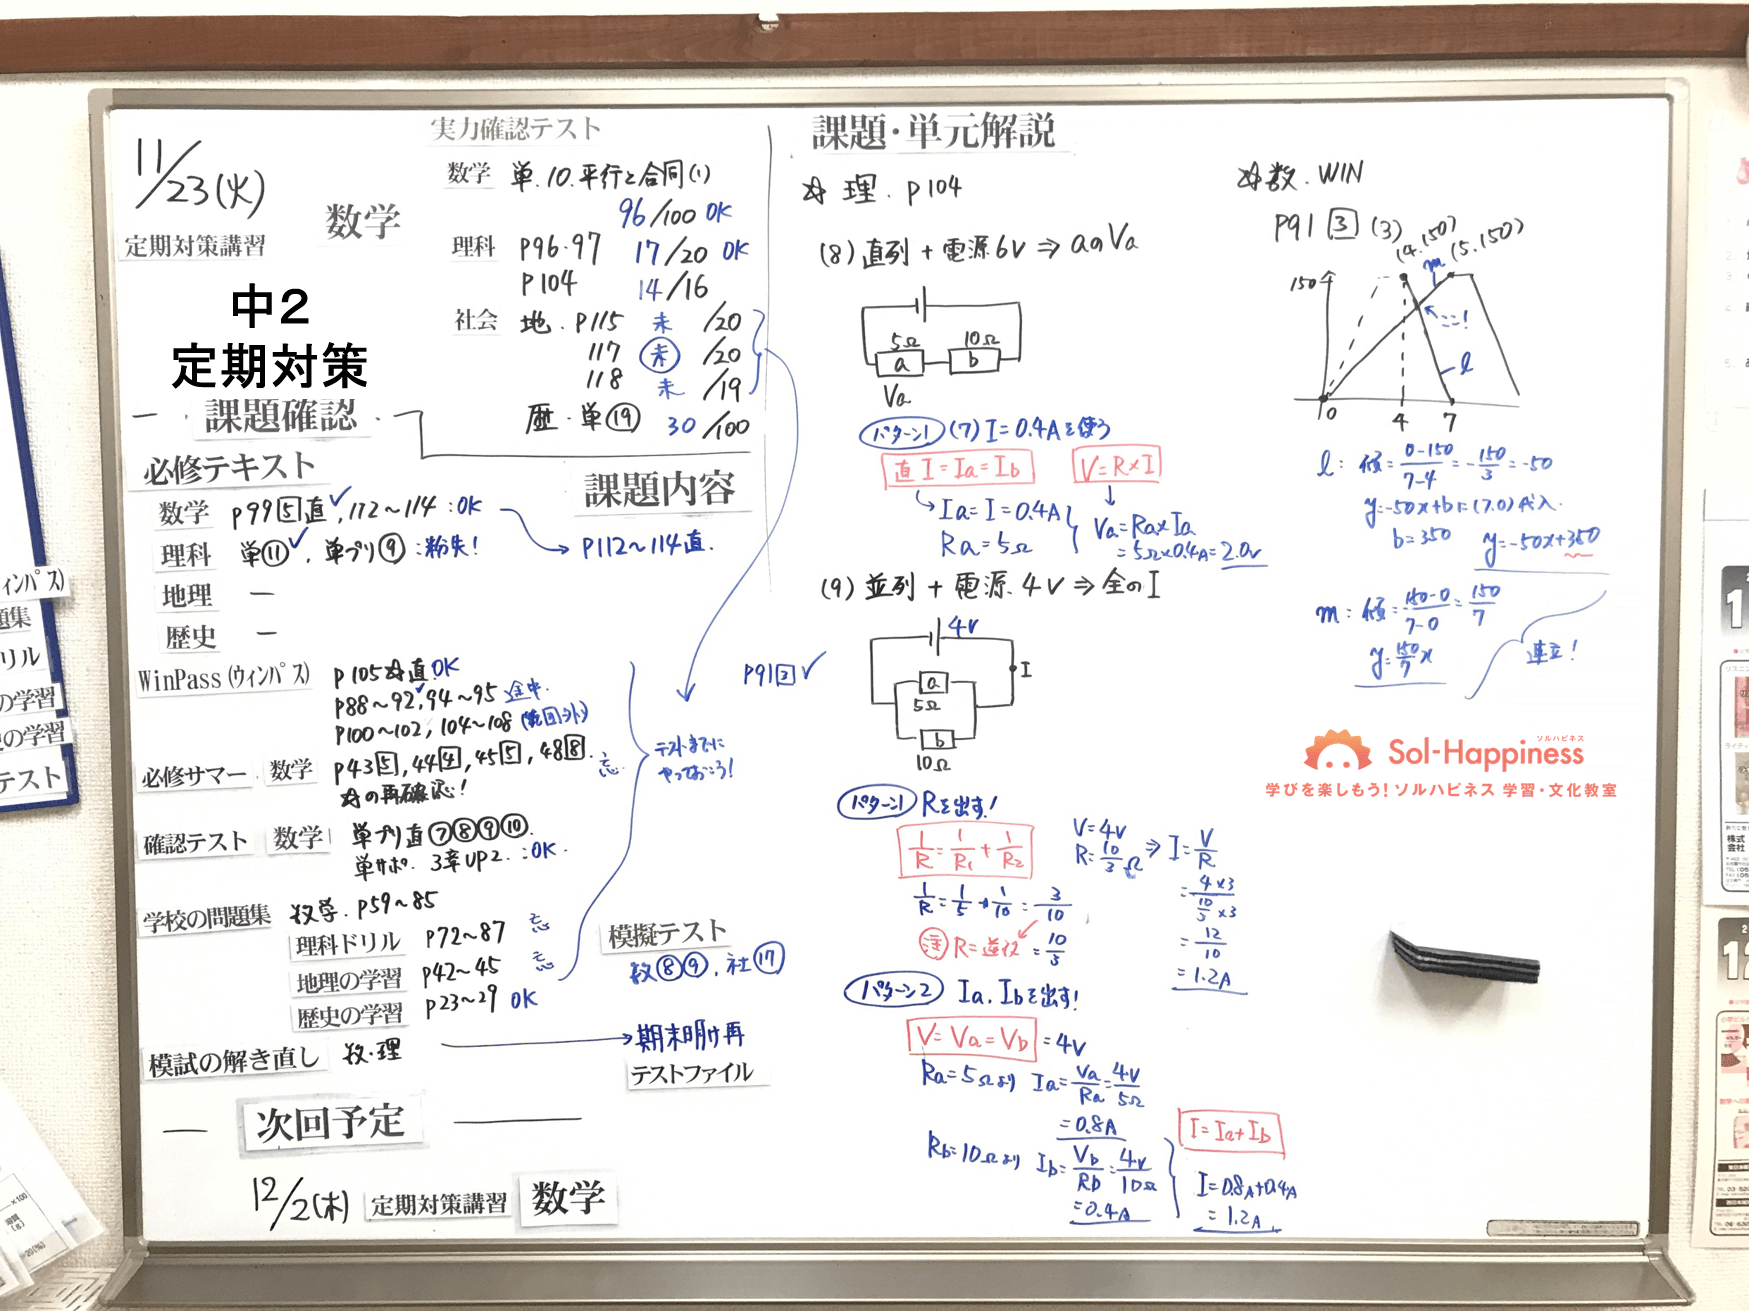 11/23(火)
定期対策講習
数学
中2
定期対策
実力確認テスト
数学 単.10.平行と合同(1)
96/100 OK
理科 P96·97 17/20 OK
P104 14/16
社会 地.P115 未 /20
117 未 /20
118 未 /19
歴.単⑲ 30/100
課題確認
必修テキスト
数学 P99 5 直✓, 112~114:OK
理科 単⑪✓, 単プリ⑨:紛失!
地理 ー
歴史 ー
課題内容
→ P112~114直.
WinPass(ウィンパス) P105☆直.OK
P88~92✓,94~95 途中.
P100~102, 104~108 (範囲外)
必修サマー 数学 P43 5, 44 4, 45 5, 48 8. 忘
☆の再確認!
確認テスト 数学 単プリ直⑦⑧⑨⑩.
単サポ. 3章UP2.:OK.
学校の問題集 数学.P59~85
理科ドリル P72~87 忘
地理の学習 P42~45 忘
歴史の学習 P23~29 OK
模試の解き直し 数·理
テストまでに
やっておこう!
P91 2 ✓
模擬テスト
数⑧⑨, 社⑰
→期末明け再
テストファイル
次回予定
12/2(木) 定期対策講習 数学
課題・単元解説
☆ 理. P104
(8) 直列 + 電源6V ⇒ aのVa
5Ω 10Ω
a b
Va
パターン1 (7) I=0.4Aを使う
直 I=Ia=Ib V=R×I
Ia=I=0.4A
Ra=5Ω
Va=Ra×Ia
=5Ω×0.4A=2.0V
(9) 並列 + 電源.4V ⇒ 全のI
4V
I
a
5Ω
b
10Ω
パターン1 Rを出す!
1/R = 1/R1 + 1/R2
1/R = 1/5 + 1/10 = 3/10
注 R=逆数 = 10/3
V=4V
R=10/3 Ω ⇒ I=V/R
= 4×3 / 10/3×3
= 12/10
= 1.2A
パターン2 Ia, Ibを出す!
V=Va=Vb =4V
Ra=5Ωより Ia=Va/Ra=4V/5Ω
=0.8A
Rb=10Ωより Ib=Vb/Rb=4V/10Ω
=0.4A
I=Ia+Ib
I=0.8A+0.4A
=1.2A
☆数. WIN
P91 3 (3)
(4.150) (5.150)
150
m
ここ!
l
0 4 7
l: 傾=0-150/7-4=-150/3=-50
y=-50x+bに(7.0)代入.
b=350 y=-50x+350
m: 傾=150-0/7-0=150/7
y=150/7 x
連立!
ソルハピネス
Sol-Happiness
学びを楽しもう!ソルハピネス 学習・文化教室
ィンパス)
題集
リル
の学習
の学習
テスト
株式
会社